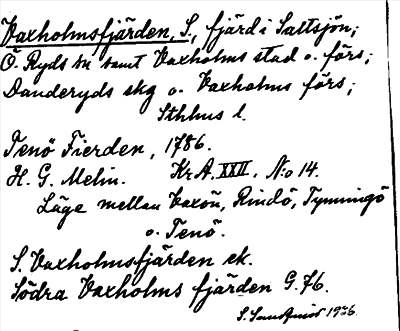 Vaxholmsfjärden, S., fjärd i Saltsjön;
Ö. Ryds sn samt Vaxholms stad o. förs;
Danderyds skg o. Vaxholms förs;
Sthlms l.
Tenö Fierden, 1786.
H. G. Melin. Kr A. XXII, No 14.
Läge mellan Vaxön, Rindö, Tynningö
o. Tenö.
S. Vaxholmsfjärden ek.
Södra Vaxholms fjärden G. 76.
S. 1936.